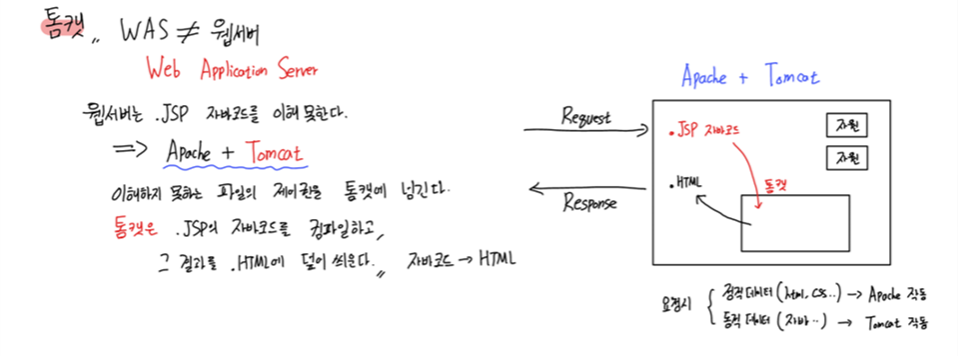 톰캣,, WAS ≠ 웹서버
Web Application Server
웹서버는 .JSP 자바코드를 이해 못한다.
⇒ Apache + Tomcat
이해하지 못하는 파일의 제어권을 톰캣에 넘긴다.
톰캣은 .JSP의 자바코드를 컴파일하고,
그 결과를 .HTML에 덮어 씌운다.,, 자바코드 → HTML
Request
Response
Apache + Tomcat
.JSP 자바코드
자원
자원
톰캣
.HTML
요청시 { 정적데이터 (html, css..) → Apache 작동
동적데이터 (자바..) → Tomcat 작동